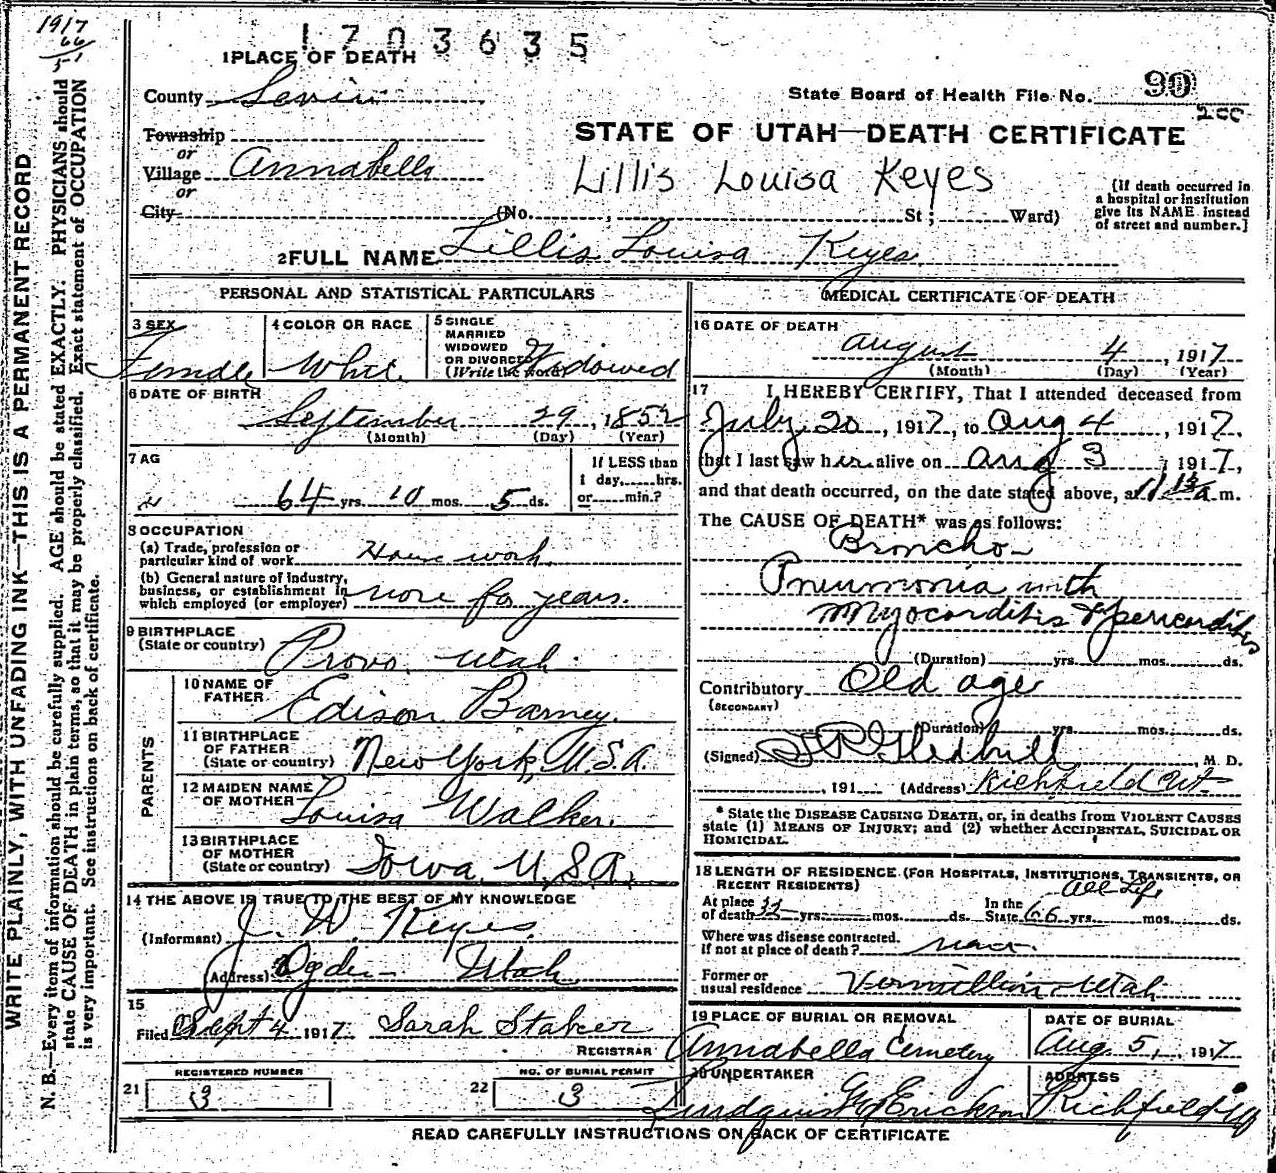 1917
66
51
1703635
1 PLACE OF DEATH
County Sevier
State Board of Health File No. 90
200
Township
or
Village Annabella
or
City
STATE OF UTAH—DEATH CERTIFICATE
Lillis Louisa Keyes
(No. , St; Ward)
[If death occurred in
a hospital or institution
give its NAME instead
of street and number.]
2 FULL NAME Lillis Louisa Keyes
PERSONAL AND STATISTICAL PARTICULARS
3 SEX
Female
4 COLOR OR RACE
White
5 SINGLE
MARRIED
WIDOWED
OR DIVORCED
(Write the word)
Widowed
6 DATE OF BIRTH
September 29, 1852
(Month) (Day) (Year)
7 AG
64 yrs. 10 mos. 5 ds.
If LESS than
1 day,......hrs.
or......min.?
8 OCCUPATION
(a) Trade, profession or
particular kind of work House work
(b) General nature of industry,
business, or establishment in
which employed (or employer) none for years.
9 BIRTHPLACE
(State or country) Provo Utah.
PARENTS
10 NAME OF
FATHER Edison Barney.
11 BIRTHPLACE
OF FATHER
(State or country) New York, U.S.A.
12 MAIDEN NAME
OF MOTHER Louisa Walker.
13 BIRTHPLACE
OF MOTHER
(State or country) Iowa, U.S.A.
14 THE ABOVE IS TRUE TO THE BEST OF MY KNOWLEDGE
(Informant) J. W. Keyes.
(Address) Ogden Utah
15
Filed Sept 4 1917. Sarah Staker
REGISTRAR
REGISTERED NUMBER
21 3
NO. OF BURIAL PERMIT
22 3
MEDICAL CERTIFICATE OF DEATH
16 DATE OF DEATH
August 4, 1917
(Month) (Day) (Year)
17 I HEREBY CERTIFY, That I attended deceased from
July 20, 1917, to Aug 4, 1917,
that I last saw her alive on Aug 3, 1917,
and that death occurred, on the date stated above, at 11 15 a m.
The CAUSE OF DEATH* was as follows:
Broncho-
Pneumonia with
Myocarditis & pericarditis
(Duration) yrs. mos. ds.
Contributory Old age
(SECONDARY)
(Duration) yrs. mos. ds.
(Signed) Gledhill, M. D.
, 191 (Address) Richfield Ut
* State the DISEASE CAUSING DEATH, or, in deaths from VIOLENT CAUSES
state (1) MEANS OF INJURY; and (2) whether ACCIDENTAL, SUICIDAL OR
HOMICIDAL.
18 LENGTH OF RESIDENCE (FOR HOSPITALS, INSTITUTIONS, TRANSIENTS, OR
RECENT RESIDENTS) All Life
At place In the
of death yrs. mos. ds. State 66 yrs. mos. ds.
Where was disease contracted.
If not at place of death?
Former or
usual residence Vermillion Utah
19 PLACE OF BURIAL OR REMOVAL
Annabella Cemetery
DATE OF BURIAL
Aug. 5, 1917
20 UNDERTAKER
Lindquist & Erickson
ADDRESS
Richfield Ut
READ CAREFULLY INSTRUCTIONS ON BACK OF CERTIFICATE
WRITE PLAINLY, WITH UNFADING INK—THIS IS A PERMANENT RECORD
N. B.—Every item of information should be carefully supplied. AGE should be stated EXACTLY. PHYSICIANS should
state CAUSE OF DEATH in plain terms, so that it may be properly classified. Exact statement of OCCUPATION
is very important. See instructions on back of certificate.